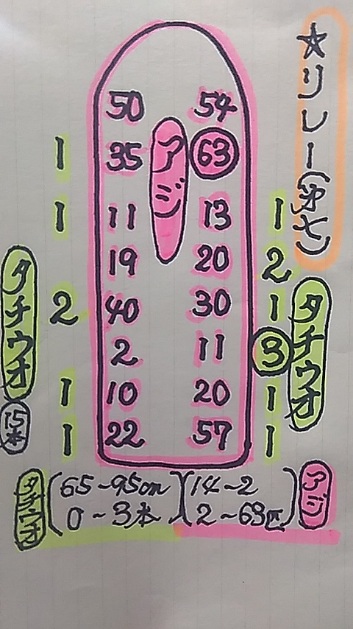 ☆リレー(㐧七)
50 54
1 35 アジ 63
1 11 13 1
19 20 2
2 40 30 1
2 11 3
1 10 20 1
1 22 57 1
タチウオ
15本
タチウオ
タチウオ
65~95cm
0~3本
14~2
2~63匹
アジ